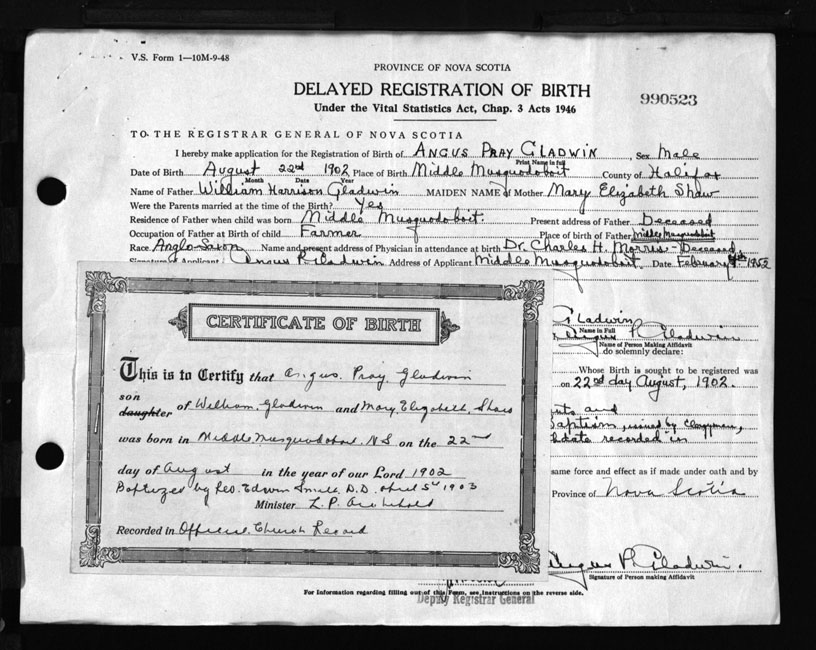 V.S. Form 1—10M-9-48
PROVINCE OF NOVA SCOTIA
DELAYED REGISTRATION OF BIRTH
Under the Vital Statistics Act, Chap. 3 Acts 1946
990523
TO THE REGISTRAR GENERAL OF NOVA SCOTIA
I hereby make application for the Registration of Birth of ANGUS PRAY GLADWIN Sex Male
Print Name in full
Date of Birth August 22nd 1902 Place of Birth Middle Musquodoboit County of Halifax
Month Date Year
Name of Father William Harrison Gladwin MAIDEN NAME of Mother Mary Elizabeth Shaw
Were the Parents married at time of the Birth? Yes
Residence of Father when child was born Middle Musquodoboit. Present address of Father Deceased
Occupation of Father at Birth of child Farmer Place of birth of Father Middle Musquodoboit
Race Anglo-Saxon Name and present address of Physician in attendance at birth Dr. Charles H. Morris - Deceased,
Signature of Applicant Angus P. Gladwin Address of Applicant Middle Musquodoboit. Date February 1952
CERTIFICATE OF BIRTH
This is to Certify that Angus. Pray. Gladwin
son
daughter of William. Gladwin and Mary Elizabeth. Shaw
was born in Middle Musquodoboit, N.S on the 22nd
day of August in the year of our Lord 1902
Baptized by Rev. Edwin Smith. D.D. April 5th 1903
Minister L. P. Archibald
Recorded in Official. Church Record
Gladwin
Name in Full
Angus P. Gladwin
Name of Person Making Affidavit
do solemnly declare:
Whose Birth is sought to be registered was
on 22nd day August, 1902.
and
Baptism, issued by Clergyman,
recorded in
same force and effect as if made under oath and by
Province of Nova Scotia
Angus P. Gladwin.
Signature of Person making Affidavit
For Information regarding filling out of this Form, see instructions on the reverse side.
Deputy Registrar General